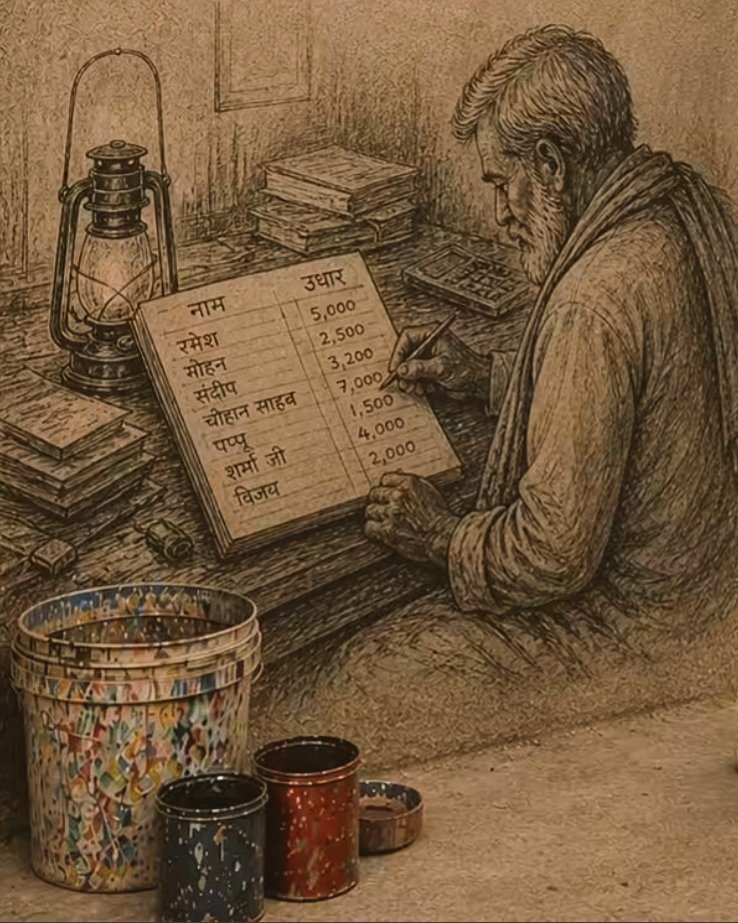 नाम उधार
रमेश 5,000
मोहन 2,500
संदीप 3,200
चौहान साहब 7,000
पप्पू 1,500
शर्मा जी 4,000
विजय 2,000